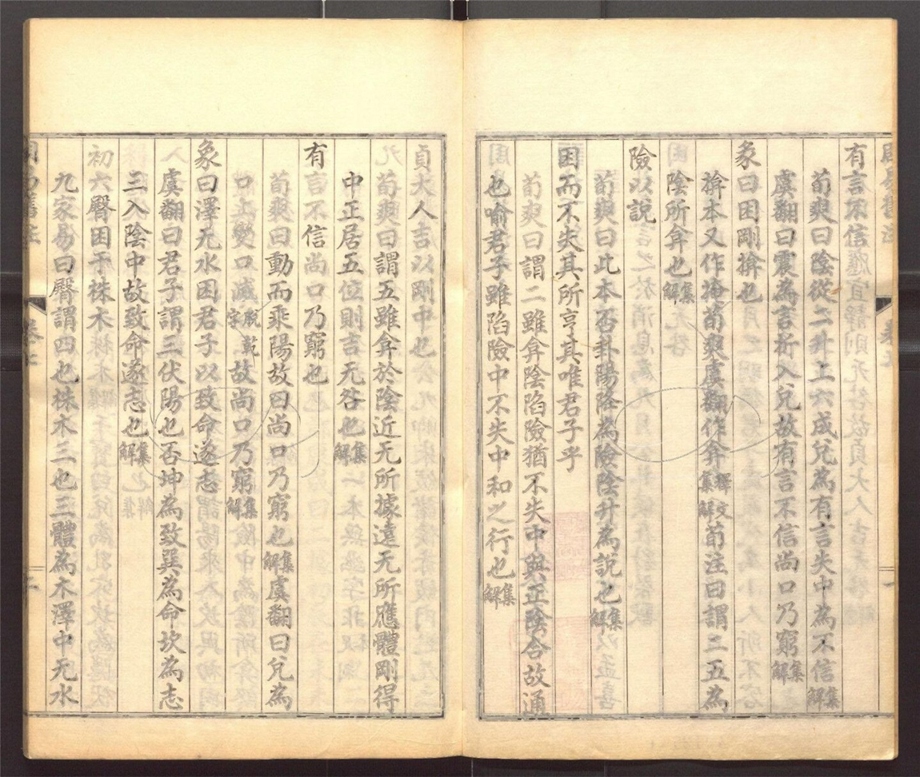 有言不信
荀爽曰陰從二升上六成兌為有言失中為不信集解
虞翻曰震為言折入兌故有言不信尚口乃窮集解
彖曰困剛揜也
揜本又作掩荀爽虞翻作弇釋文集解荀注曰謂二五為
陰所弇也集解
險以說
荀爽曰此本否卦陽降為險陰升為說也集解
困而不失其所亨其唯君子乎
荀爽曰謂二雖弇陰陷險猶不失中與正陰合故通
也喻君子雖陷險中不失中和之行也集解
貞大人吉以剛中也
荀爽曰謂五雖弇於陰近无所據遠无所應體剛得
中正居五位則吉无咎也集解
有言不信尚口乃窮也
荀爽曰動而乘陽故曰尚口乃窮也集解虞翻曰兌為
口上變口滅脫乾字故尚口乃窮集解
象曰澤无水困君子以致命遂志
虞翻曰君子謂三伏陽也否坤為致巽為命坎為志
三入陰中故致命遂志也集解
初六臀困于株木
九家易曰臀謂四也株木三也三體為木澤中无水
卷七